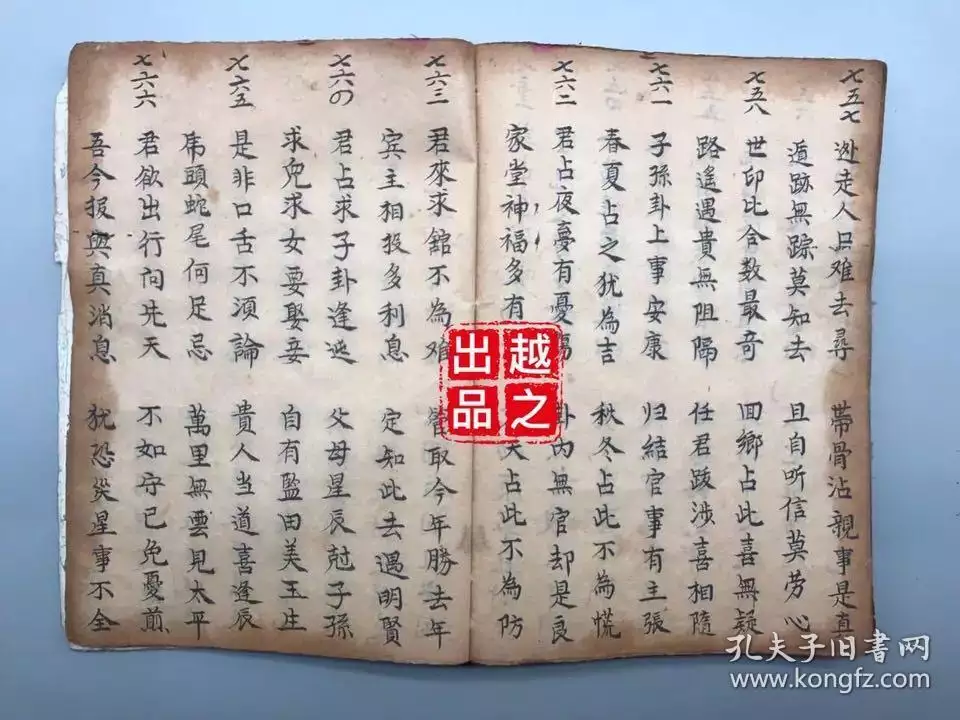 七五七
逃走人口难去尋 帶骨沾親事是真
遁跡無踪莫知去 且自听信莫劳心
七五八
世印比合数最奇 回鄉占此喜無疑
路遙遇貴無阻隔 任君跋涉喜相隨
七六一
子孫卦上事安康 归結官事有主張
春夏占之犹為吉 秋冬占此不為慌
七六二
君占夜夢有憂 卦内無官却是良
家堂神福多有 天占此不為防
七六三
君來求舘不為难 管取今年勝去年
宾主相投多利息 定知此去遇明賢
七六の
君占求子卦逢 父母星辰尅子孫
求兒求女要娶妾 自有藍田美玉生
七六五
是非口舌不須論 貴人当道喜逢辰
虎頭蛇尾何足忌 萬里無雲見太平
七六六
君欲出行问先天 不如守已免憂煎
吾今报與真消息 犹恐災星事不全
越之
出品
孔夫子旧書网
www.kongfz.com